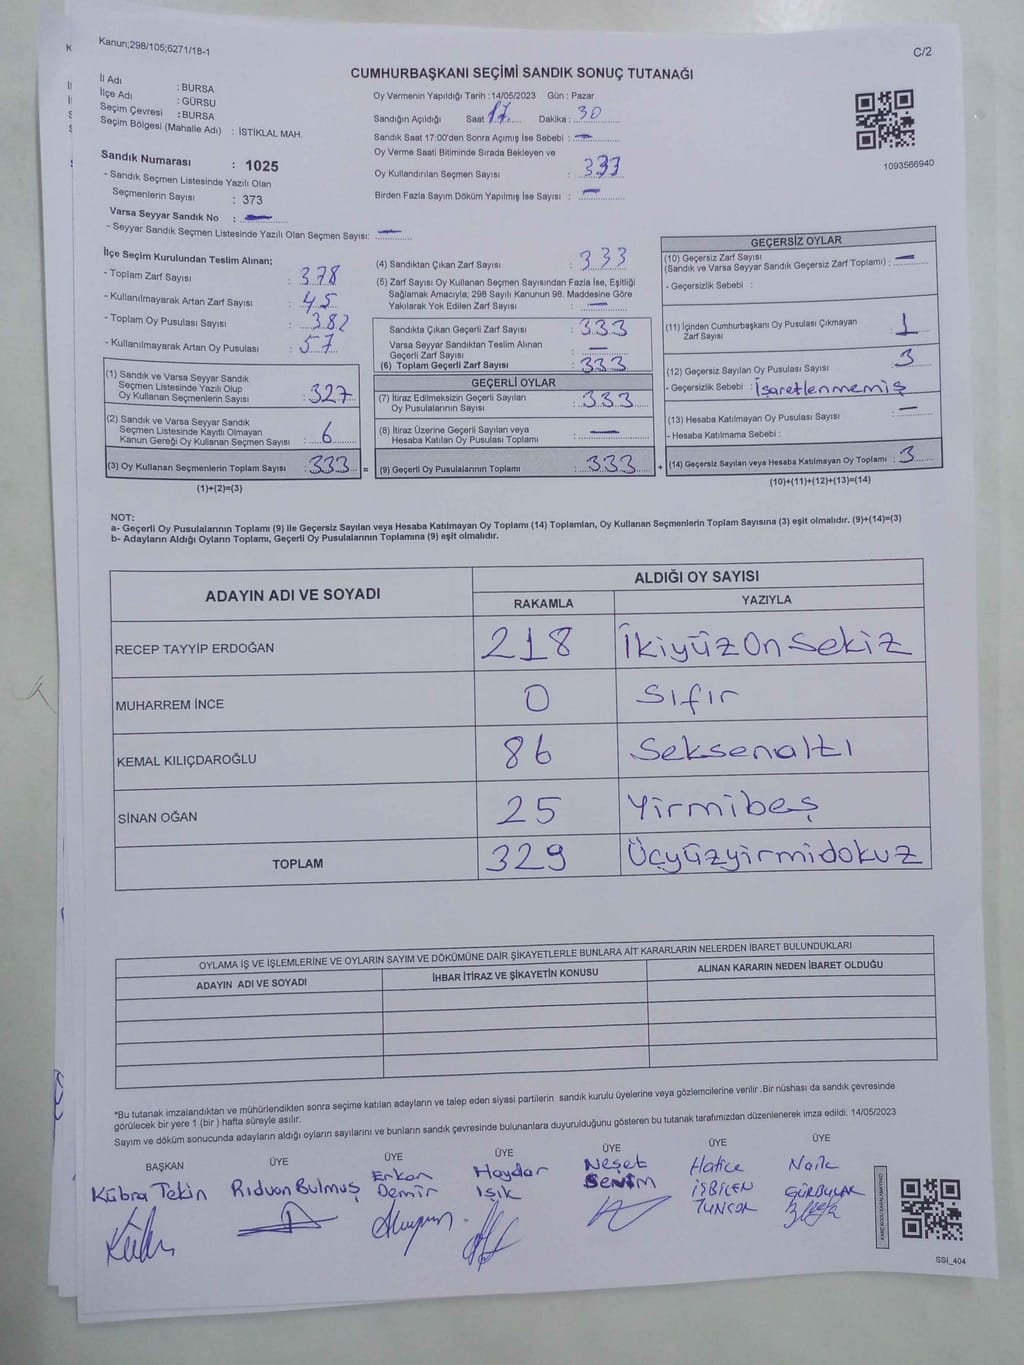 Kanun;298/105;6271/18-1
C/2
CUMHURBAŞKANI SEÇİMİ SANDIK SONUÇ TUTANAĞI
İl Adı : BURSA
İlçe Adı : GÜRSU
Seçim Çevresi : BURSA
Seçim Bölgesi (Mahalle Adı) : İSTİKLAL MAH.
Sandık Numarası : 1025
- Sandık Seçmen Listesinde Yazılı Olan
Seçmenlerin Sayısı : 373
Varsa Seyyar Sandık No : —
- Seyyar Sandık Seçmen Listesinde Yazılı Olan Seçmen Sayısı: —
Oy Vermenin Yapıldığı Tarih : 14/05/2023 Gün : Pazar
Sandığın Açıldığı Saat 17 Dakika : 30
Sandık Saat 17:00'den Sonra Açımış İse Sebebi : —
Oy Verme Saati Bitiminde Sırada Bekleyen ve
Oy Kullandırılan Seçmen Sayısı : 333
Birden Fazla Sayım Döküm Yapılmış İse Sayısı : —
1093566940
İlçe Seçim Kurulundan Teslim Alınan;
- Toplam Zarf Sayısı : 378
- Kullanılmayarak Artan Zarf Sayısı : 45
- Toplam Oy Pusulası Sayısı : 382
- Kullanılmayarak Artan Oy Pusulası : 57
(1) Sandık ve Varsa Seyyar Sandık
Seçmen Listesinde Yazılı Olup
Oy Kullanan Seçmenlerin Sayısı : 327
(2) Sandık ve Varsa Seyyar Sandık
Seçmen Listesinde Kayıtlı Olmayan
Kanun Gereği Oy Kullanan Seçmen Sayısı : 6
(3) Oy Kullanan Seçmenlerin Toplam Sayısı : 333 =
(1)+(2)=(3)
(4) Sandıktan Çıkan Zarf Sayısı : 333
(5) Zarf Sayısı Oy Kullanan Seçmen Sayısından Fazla İse, Eşitliği
Sağlamak Amacıyla; 298 Sayılı Kanunun 98. Maddesine Göre
Yakılarak Yok Edilen Zarf Sayısı : —
Sandıkta Çıkan Geçerli Zarf Sayısı : 333
Varsa Seyyar Sandıktan Teslim Alınan
Geçerli Zarf Sayısı : —
(6) Toplam Geçerli Zarf Sayısı : 333
GEÇERLİ OYLAR
(7) İtiraz Edilmeksizin Geçerli Sayılan
Oy Pusulalarının Sayısı : 333
(8) İtiraz Üzerine Geçerli Sayılan veya
Hesaba Katılan Oy Pusulası Toplamı : —
(9) Geçerli Oy Pusulalarının Toplamı : 333 +
GEÇERSİZ OYLAR
(10) Geçersiz Zarf Sayısı
(Sandık ve Varsa Seyyar Sandık Geçersiz Zarf Toplamı) : —
- Geçersizlik Sebebi :
(11) İçinden Cumhurbaşkanı Oy Pusulası Çıkmayan
Zarf Sayısı : 1
(12) Geçersiz Sayılan Oy Pusulası Sayısı : 3
- Geçersizlik Sebebi : İşaretlenmemiş
(13) Hesaba Katılmayan Oy Pusulası Sayısı : —
- Hesaba Katılmama Sebebi :
(14) Geçersiz Sayılan veya Hesaba Katılmayan Oy Toplamı : 3
(10)+(11)+(12)+(13)=(14)
NOT:
a- Geçerli Oy Pusulalarının Toplamı (9) ile Geçersiz Sayılan veya Hesaba Katılmayan Oy Toplamı (14) Toplamları, Oy Kullanan Seçmenlerin Toplam Sayısına (3) eşit olmalıdır. (9)+(14)=(3)
b- Adayların Aldığı Oyların Toplamı, Geçerli Oy Pusulalarının Toplamına (9) eşit olmalıdır.
ADAYIN ADI VE SOYADI ALDIĞI OY SAYISI
RAKAMLA YAZIYLA
RECEP TAYYİP ERDOĞAN 218 İkiyüzOnSekiz
MUHARREM İNCE 0 Sıfır
KEMAL KILIÇDAROĞLU 86 Seksenaltı
SİNAN OĞAN 25 Yirmibeş
TOPLAM 329 Üçyüzyirmidokuz
OYLAMA İŞ VE İŞLEMLERİNE VE OYLARIN SAYIM VE DÖKÜMÜNE DAİR ŞİKAYETLERLE BUNLARA AİT KARARLARIN NELERDEN İBARET BULUNDUKLARI
ADAYIN ADI VE SOYADI İHBAR İTİRAZ VE ŞİKAYETİN KONUSU ALINAN KARARIN NEDEN İBARET OLDUĞU
*Bu tutanak imzalandıktan ve mühürlendikten sonra seçime katılan adayların ve talep eden siyasi partilerin sandık kurulu üyelerine veya gözlemcilerine verilir .Bir nüshası da sandık çevresinde
görülecek bir yere 1 (bir ) hafta süreyle asılır.
Sayım ve döküm sonucunda adayların aldığı oyların sayılarını ve bunların sandık çevresinde bulunanlara duyurulduğunu gösteren bu tutanak tarafımızdan düzenlenerek imza edildi. 14/05/2023
BAŞKAN ÜYE ÜYE ÜYE ÜYE ÜYE ÜYE
Kübra Tekin Rıdvan Bulmuş Erkan Demir Haydar Işık Neşet SEVİM Hatice İŞBİLEN TUNCOL Naile GÜRBULAK
SSI_404